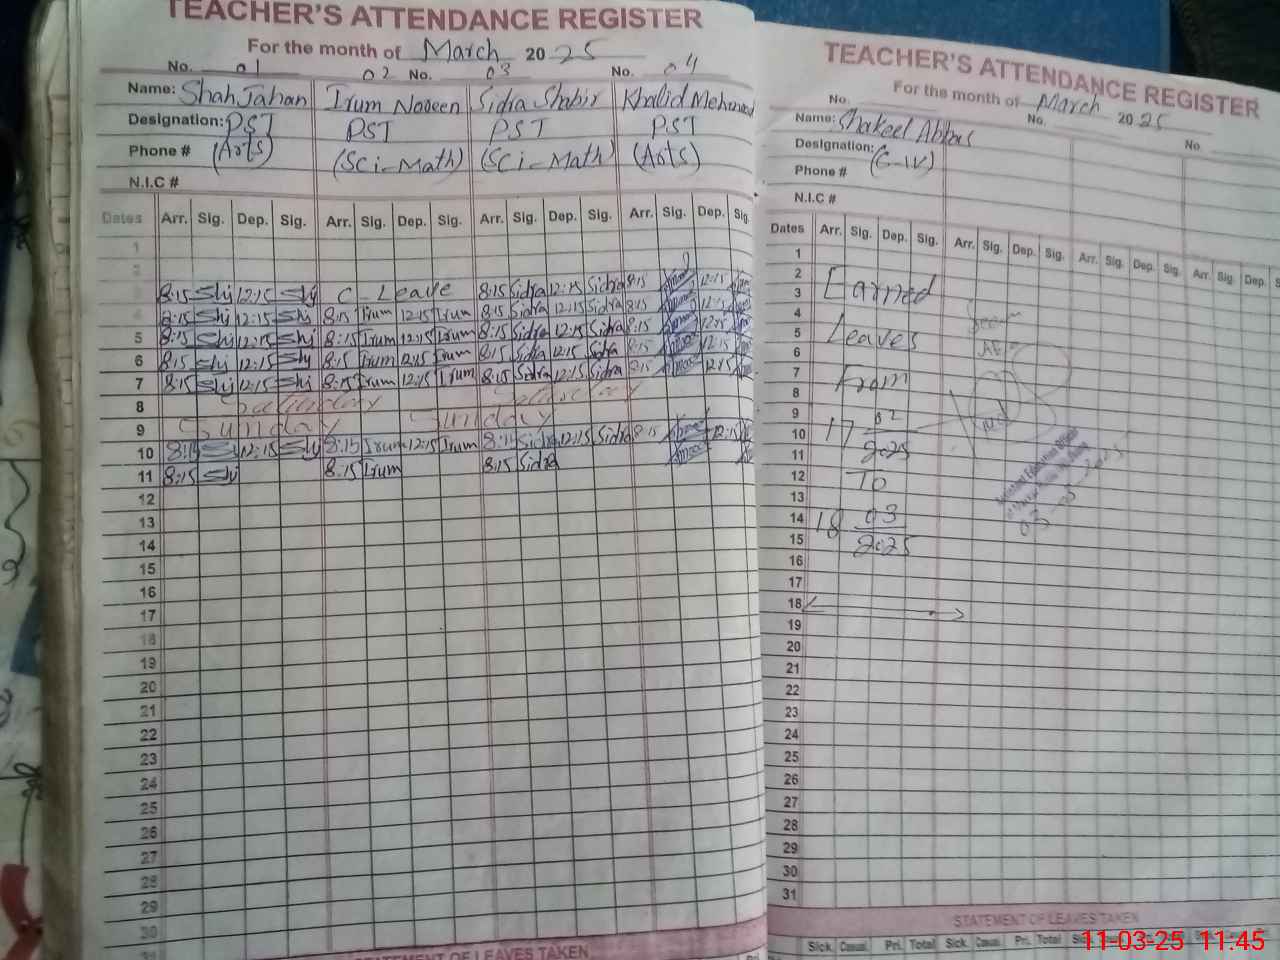 TEACHER'S ATTENDANCE REGISTER
For the month of March 2025
No. 01 02 No. 03 No. 04
Name: Shah Jahan Irum Naveen Sidra Shabir Khalid Mehmood
Designation: PST PST PST PST
Phone # (Arts) (Sci-Math) (Sci-Math) (Arts)
N.I.C #
Dates Arr. Sig. Dep. Sig. Arr. Sig. Dep. Sig. Arr. Sig. Dep. Sig. Arr. Sig. Dep. Sig.
1
2
3 8:15 12:15 C-Leave 8:15 Sidra 12:15 Sidra 8:15 12:15
4 8:15 12:15 8:15 Irum 12:15 Irum 8:15 Sidra 12:15 Sidra 8:15 12:15
5 8:15 12:15 8:15 Irum 12:15 Irum 8:15 Sidra 12:15 Sidra 8:15 12:15
6 8:15 12:15 8:15 Irum 12:15 Irum 8:15 Sidra 12:15 Sidra 8:15 12:15
7 8:15 12:15 8:15 Irum 12:15 Irum 8:15 Sidra 12:15 Sidra 8:15 12:15
8 Saturday Saturday
9 Sunday Sunday
10 8:15 12:15 8:15 Irum 12:15 Irum 8:15 Sidra 12:15 Sidra 8:15 12:15
11 8:15 8:15 Irum 8:15 Sidra
12
13
14
15
16
17
18
19
20
21
22
23
24
25
26
27
28
29
30
31
STATEMENT OF LEAVES TAKEN
TEACHER'S ATTENDANCE REGISTER
For the month of March 2025
No. No. No.
Name: Shakeel Abbas
Designation: (C-IV)
Phone #
N.I.C #
Dates Arr. Sig. Dep. Sig. Arr. Sig. Dep. Sig. Arr. Sig. Dep. Sig. Arr. Sig. Dep. S
1
2
3 Earned
4
5 Leaves
6
7 From
8
9 02
10 17
11 2025
12 To
13
14 18 03
15 2025
16
17
18
19
20
21
22
23
24
25
26
27
28
29
30
31
Assistant Education Officer
03-03-2025
STATEMENT OF LEAVES TAKEN
Sick. Casual. Pri. Total Sick. Casual. Pri. Total
11-03-25 11:45